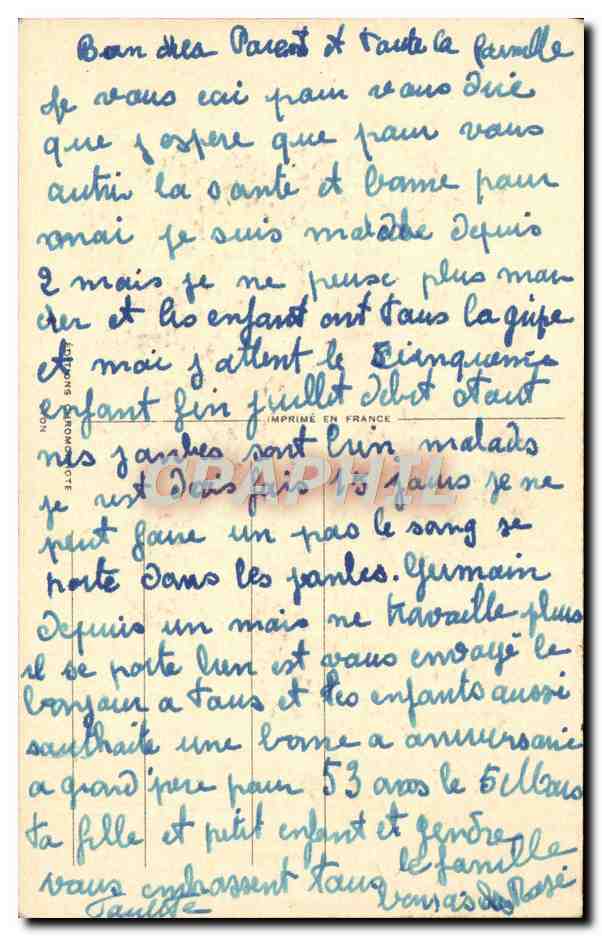 Bon chers Parent et toute la famille
Je vous ecri pour vous dire
que j espere que pour vous
autre la santé et bonne pour
moi je suis malade depuis
2 mois je ne peuse plus mar
cher et les enfant ont tous la gripe
et moi j attent le cinquieme
enfant fin juillet debut Aout
mes jambes sont bien malads
je rest dois fois 15 jours je ne
peut faire un pas le sang se
porte dans les janbes. Germain
depuis un mois ne travaille plus
il se porte bien est vous envoyé le
bonjour a tous et les enfants aussi
southaite une bonne a anniversaire
a grand père pour 53 ans le 5 Mars
ta fille et petit enfant et gendre
vous embassent tous la famille
Paulette
ÉDITIONS CHROMOVOTE LYON
IMPRIMÉ EN FRANCE
CPAPHIL